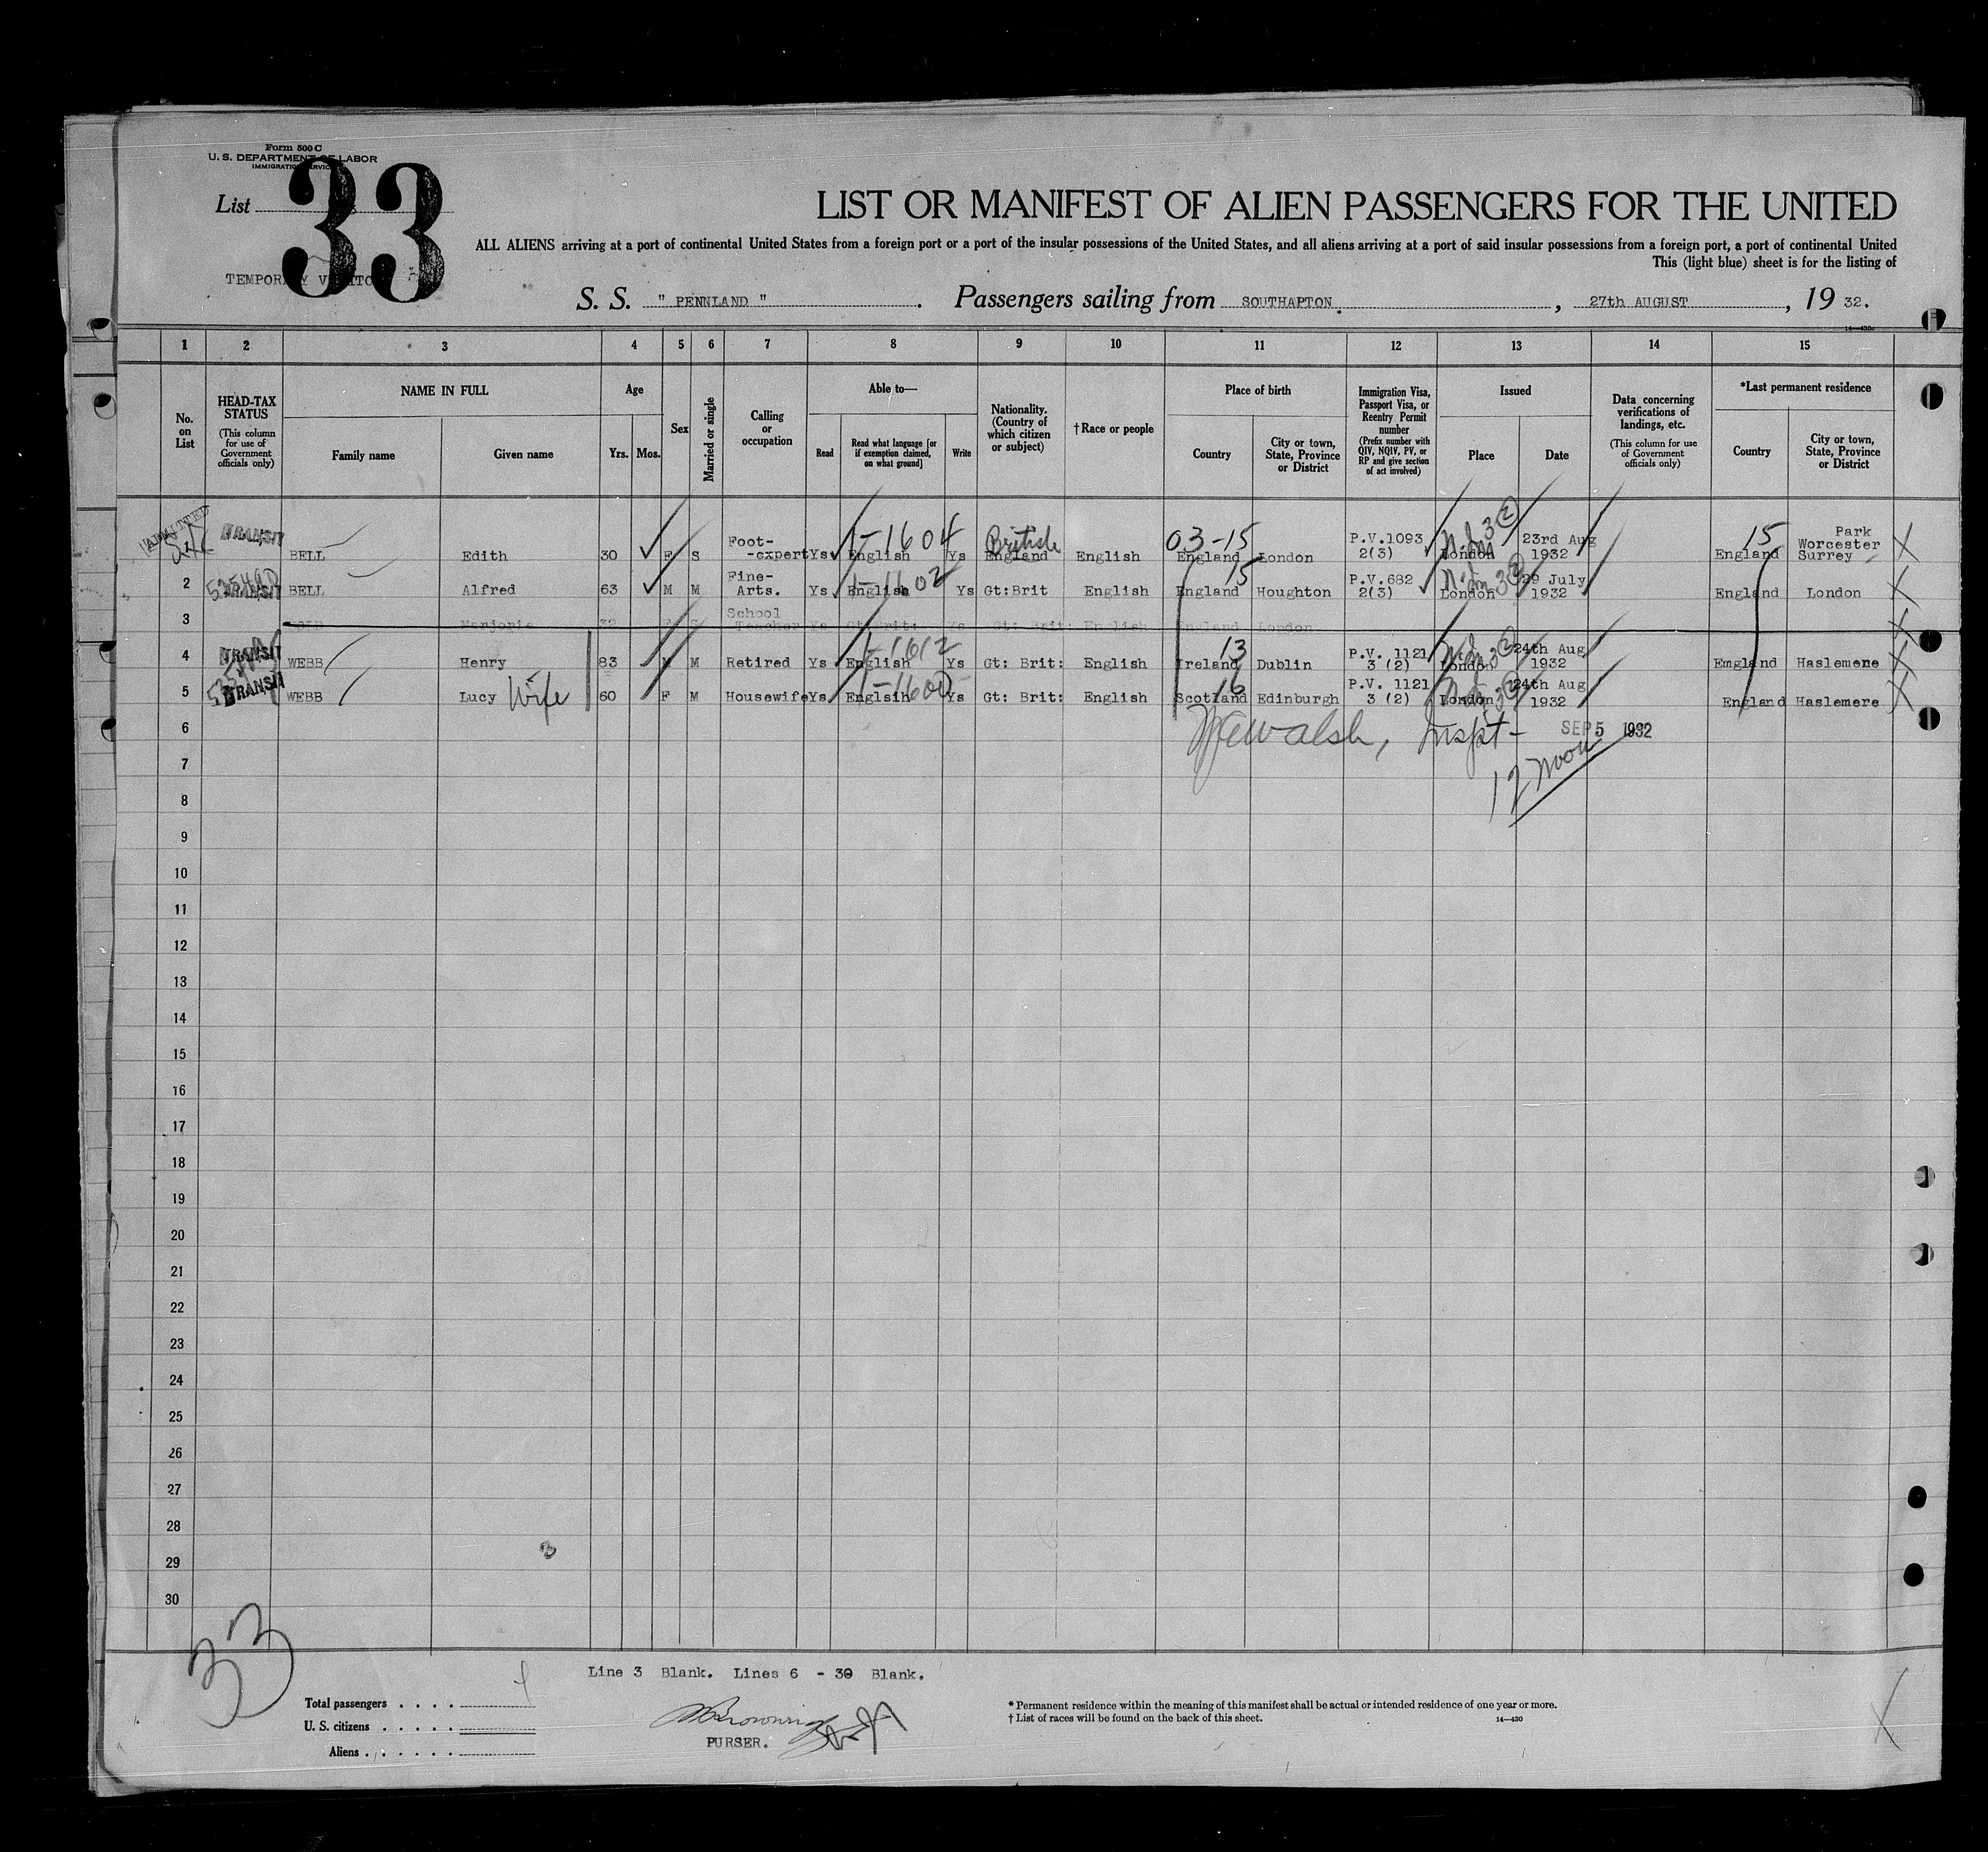 Form 500 C
U. S. DEPARTMENT OF LABOR
IMMIGRATION SERVICE
List
33
TEMPORARY VISITO
LIST OR MANIFEST OF ALIEN PASSENGERS FOR THE UNITED
ALL ALIENS arriving at a port of continental United States from a foreign port or a port of the insular possessions of the United States, and all aliens arriving at a port of said insular possessions from a foreign port, a port of continental United
This (light blue) sheet is for the listing of
S. S. " PENNLAND ". Passengers sailing from SOUTHAPTON. , 27th AUGUST , 19 32.
14—430
1 2 3 4 5 6 7 8 9 10 11 12 13 14 15
No. on List
HEAD-TAX STATUS
(This column for use of Government officials only)
NAME IN FULL
Family name
Given name
Age
Yrs. Mos.
Sex
Married or single
Calling or occupation
Able to—
Read
Read what language [or if exemption claimed, on what ground]
Write
Nationality. (Country of which citizen or subject)
† Race or people
Place of birth
Country
City or town, State, Province or District
Immigration Visa, Passport Visa, or Reentry Permit number
(Prefix number with QIV, NQIV, PV, or RP and give section of act involved)
Issued
Place
Date
Data concerning verifications of landings, etc.
(This column for use of Government officials only)
*Last permanent residence
Country
City or town, State, Province or District
ADMITTED TRANSIT BELL Edith 30 F S Foot--expert Ys English 1-1604 Ys British England English 03-15 England London P.V.1093 2(3) London 23rd Aug 1932 15 England Park Worcester Surrey
2 TRANSIT BELL Alfred 63 M M Fine-Arts. Ys English 1-1602 Ys Gt:Brit English 15 England Houghton P.V.682 2(3) London 29 July 1932 England London
3 Marjorie 32 F S School Teacher Ys Gt: Brit: Ys Gt: Brit: English England London
4 TRANSIT WEBB Henry 83 M M Retired Ys English 1-1612 Ys Gt: Brit: English 13 Ireland Dublin P.V. 1121 3 (2) London 24th Aug 1932 Emgland Haslemene
5 TRANSIT WEBB Lucy Wife 60 F M Housewife Ys Englsih 1-1600 Ys Gt: Brit: English 16 Scotland Edinburgh P.V. 1121 3 (2) London 24th Aug 1932 England Haslemere
6 walsh, Inspt- SEP 5 1932
7 12 Noon
8
9
10
11
12
13
14
15
16
17
18
19
20
21
22
23
24
25
26
27
28
29
30
33
Line 3 Blank. Lines 6 - 30 Blank.
Total passengers . . . .
U. S. citizens . . . . .
Aliens . . . . . .
PURSER.
* Permanent residence within the meaning of this manifest shall be actual or intended residence of one year or more.
† List of races will be found on the back of this sheet.
14—430